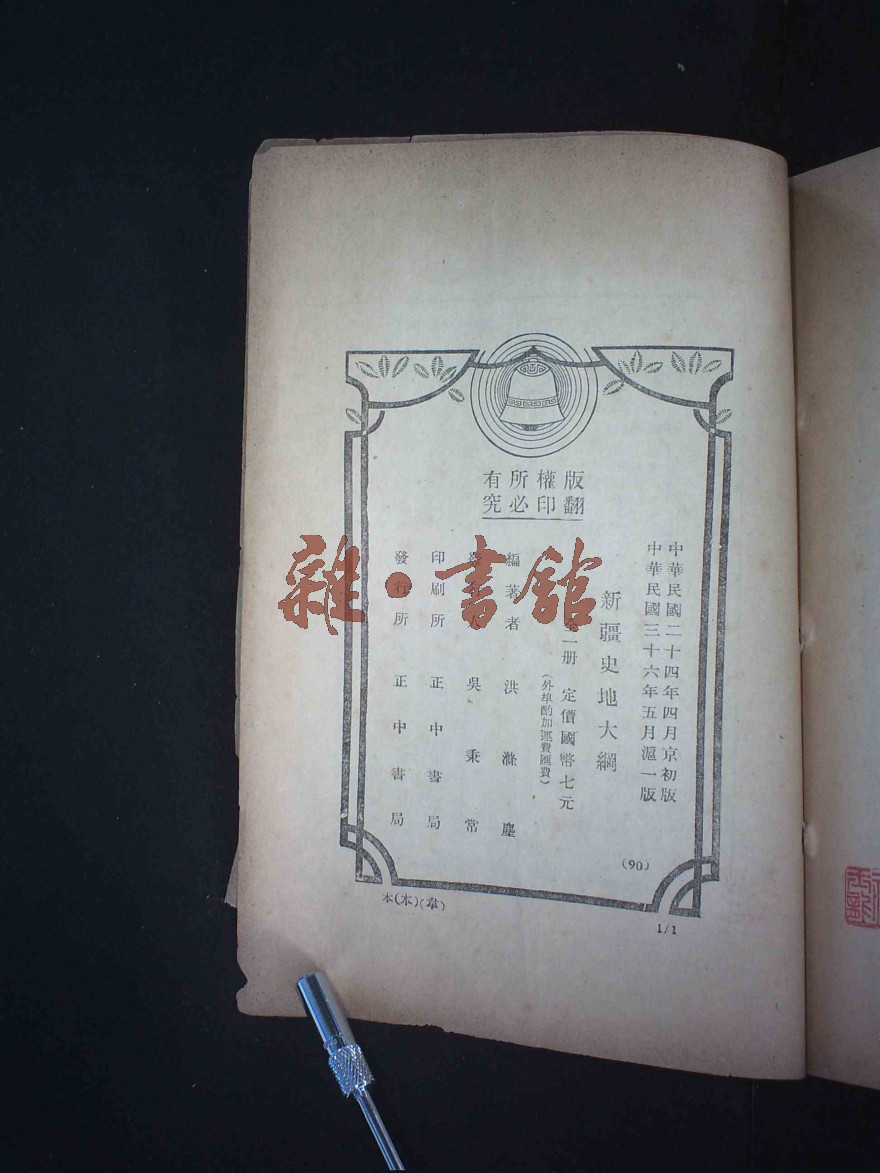 版權所有
翻印必究
中華民國二十四年四月京初版
中華民國三十六年五月滬一版
新疆史地大綱
全一册 定價國幣七元
(外埠酌加運費匯費)
編著者 洪滌塵
發行人 吳秉常
印刷所 正中書局
發行所 正中書局
(90)
本(本)(韋)
1/1
雜·書館